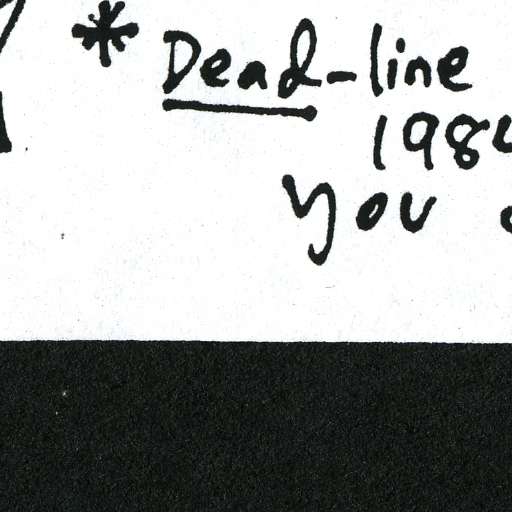 * Dead-line
198
you